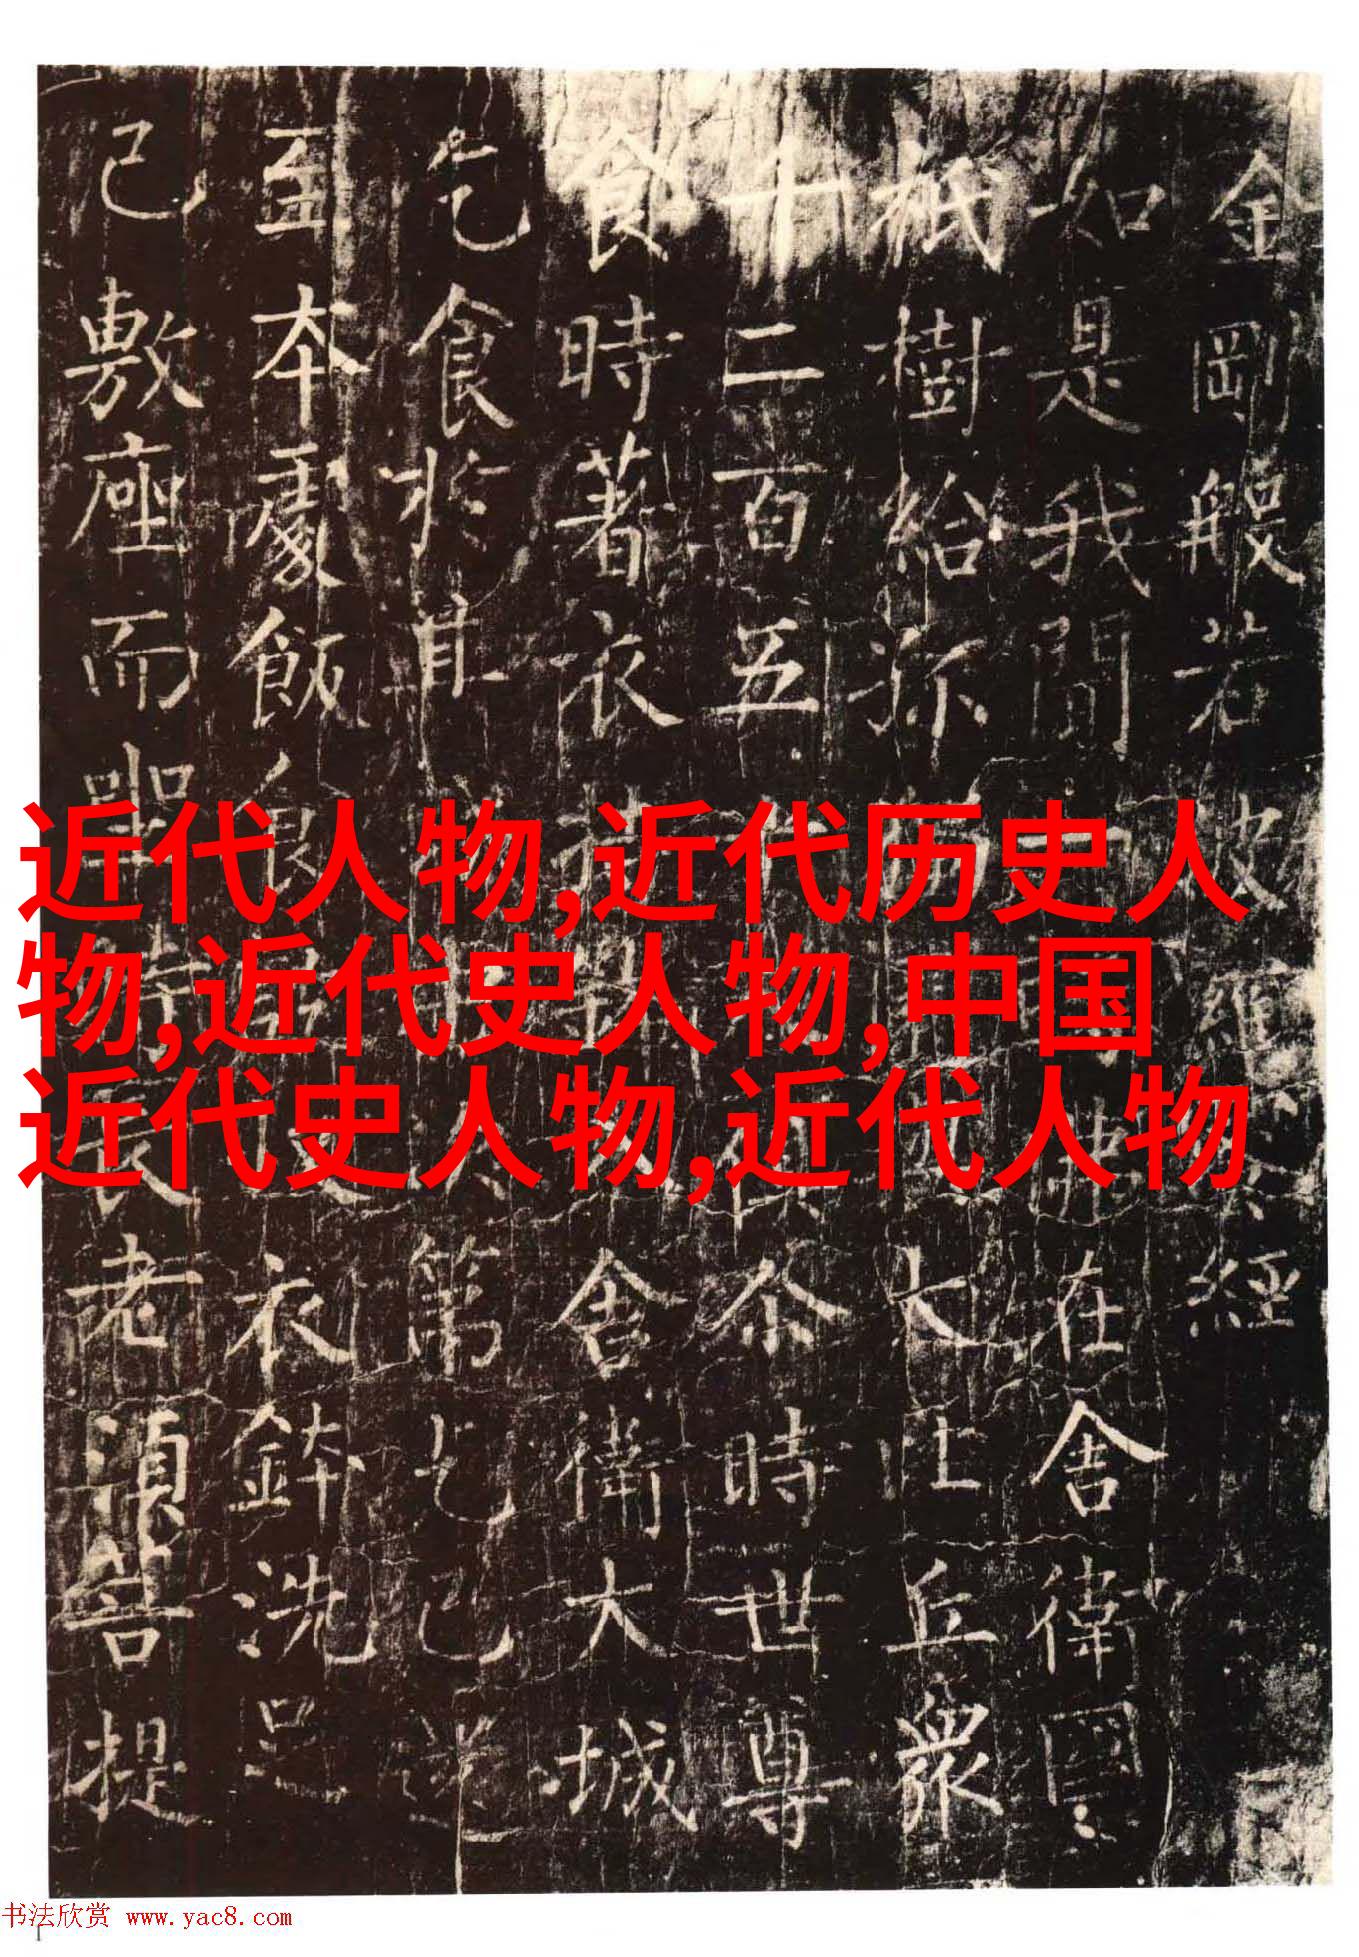 金剛般若波經
如是我聞佛在舍衛國
祇樹給孤大比丘眾
十二百五尒時世尊
食時著衣持舍衛大城
乞食於其第乞已還
至本處飯食衣鉢洗足
已敷座而坐時長老須菩提
近代人物,近代历史人
物,近代史人物,中国
近代史人物,近代人物
书法欣赏 www.yac8.com